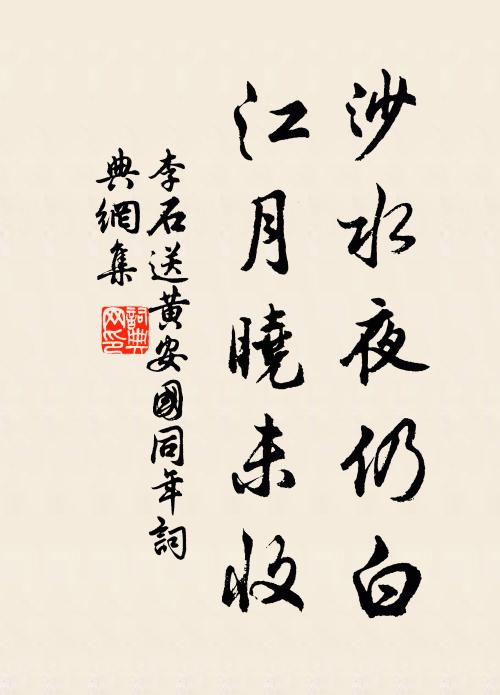 沙水夜仍白
江月曉未收
李石送黄安國同年詞
典網集
詞典
网印